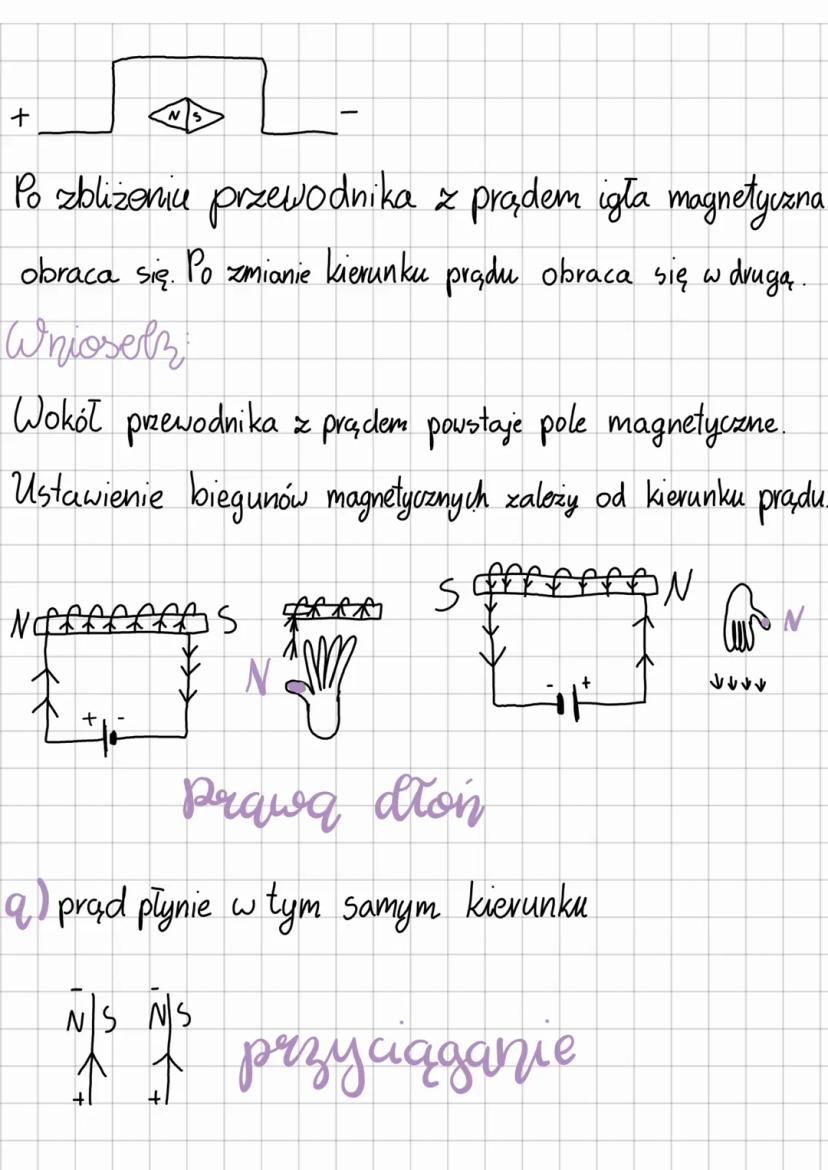 + N S -
Po zbliżeniu przewodnika z prądem igła magnetyczna
obraca się. Po zmianie kierunku prądu obraca się w drugą.
Wniosek:
Wokół przewodnika z prądem powstaje pole magnetyczne.
Ustawienie biegunów magnetycznych zależy od kierunku prądu.
N S
+ -
N
S N
- +
N
prawą dłoń
a) prąd płynie w tym samym kierunku
- -
N S N S
+ +
przyciąganie